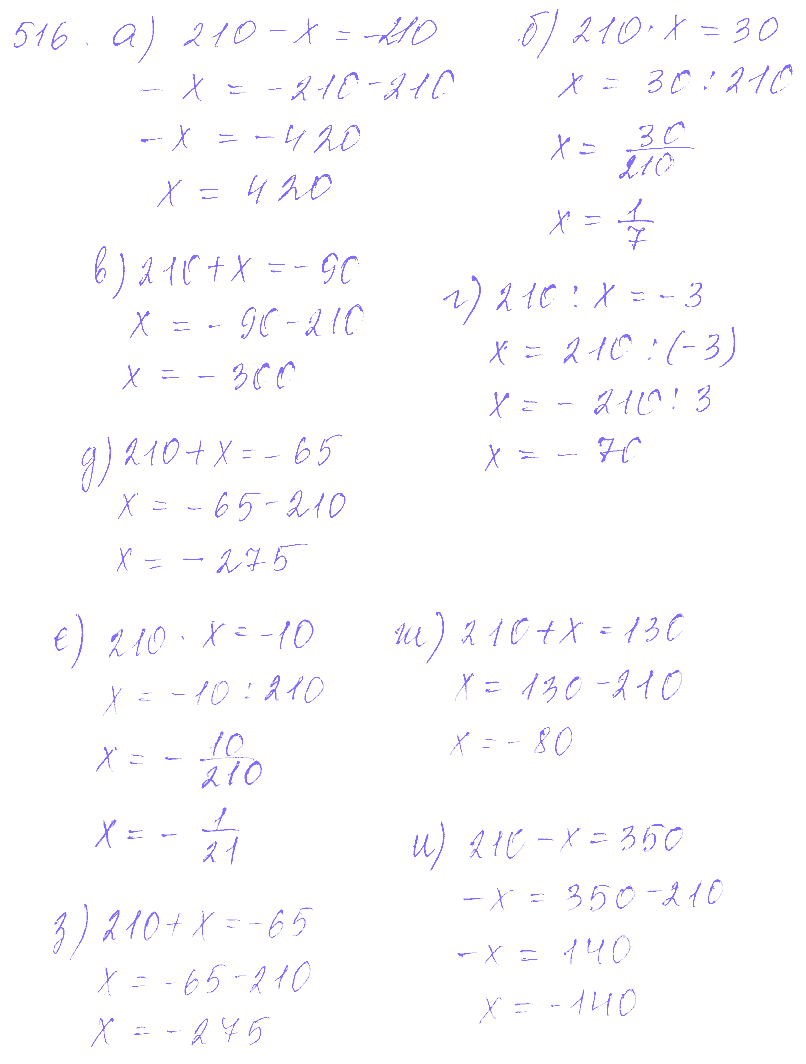 516. а) 210 - x = -210
- x = -210-210
- x = -420
x = 420
б) 210 · x = 30
x = 30 : 210
x = 30/210
x = 1/7
в) 210 + x = -90
x = -90-210
x = -300
г) 210 : x = -3
x = 210 : (-3)
x = - 210 : 3
x = - 70
д) 210 + x = -65
x = -65-210
x = -275
е) 210 · x = -10
x = -10 : 210
x = - 10/210
x = - 1/21
ж) 210 + x = 130
x = 130-210
x = -80
з) 210 + x = -65
x = -65-210
x = -275
и) 210 - x = 350
-x = 350-210
-x = 140
x = -140